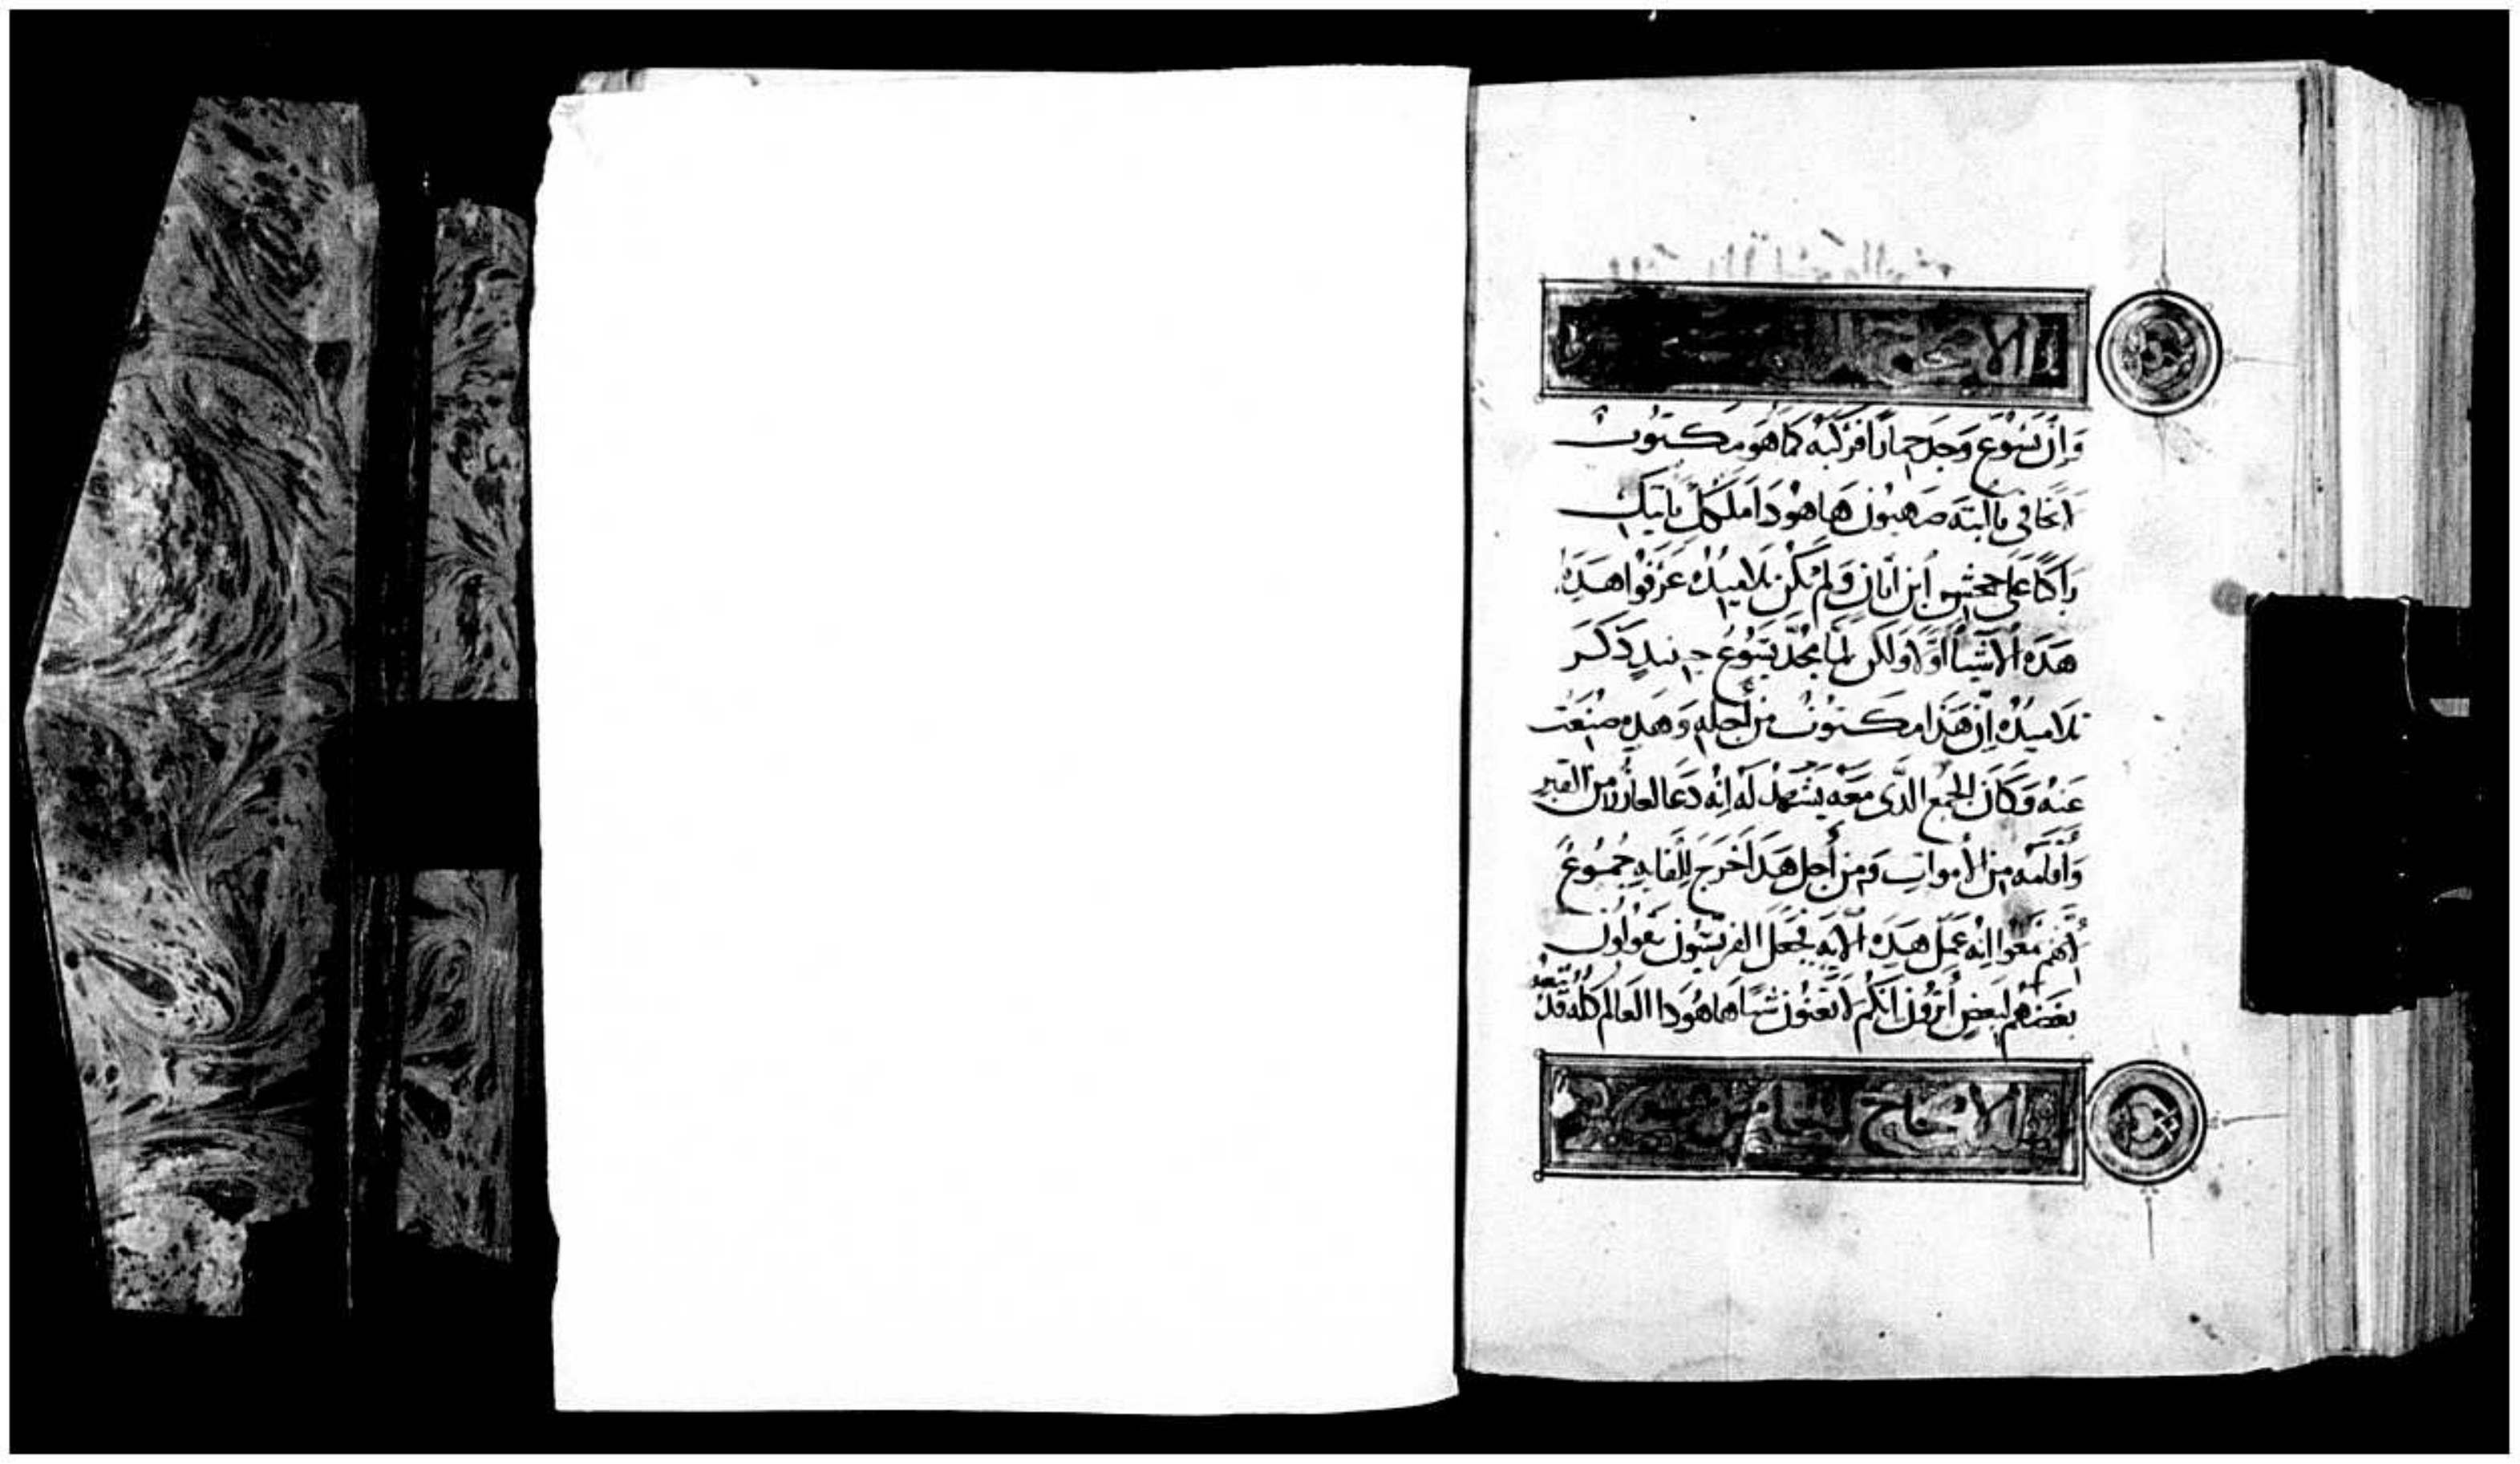 وَإِنَّ يَسُوع وَجَدَ حِمارًا فَرَكِبَهُ كَمَا هُوَ مَكتوُبٌ
لاتخافى ياابنَة صهيوُن هَاهوُدَا مَلكك ياتيك
رَاكبًا عَلَى جحشٍ اُبن اتان وَلم تكُن تلاميدُهُ عَرَفوُا هَدِه
هَدِه الاشيآ اوّلاً وَلكن لمّا مُجّدَ يَسُوُع حينيدٍ دَكَرَ
تلاميدُهُ اِنّ هَدَا مكتوُبٌ مِن أجلِهِ وَهَدِه صُنعَت
عَنهُ وَكانَ الجمع الدَّى مَعَه يَشهدُ لَه انهُ دَعَا لعازرَ مِن القَبر
وَأقامَه مِن الأموات وَمِن أجل هَدَا خَرجَ للقايهِ جُموُعٌ
لأنهم سَمَعوا انه عَمِلَ هَدِه الايَه فجعل الفريسّيوُن يقولوُن
بَعضهُم لبَعضٍ أترَوُن انكم لا تَغنوُن شياً هاهوُدا العالم كله قد تبعهُ
الاصحاح